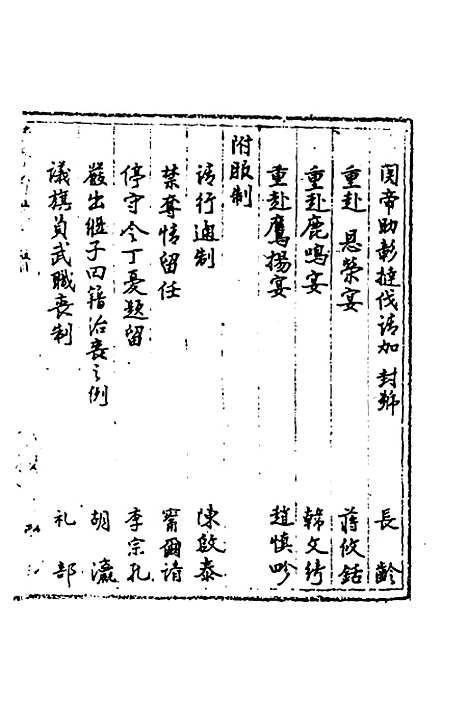 関帝助彰撻伐請加 封號 長齡
重赴 恩榮宴 蔣攸銛
重赴鹿鳴宴 韓文綺
重赴鷹揚宴 趙慎畛
附服制
請行通制 陳啟泰
禁奪情留任 甯爾講
停守令丁憂題留 李宗孔
嚴出繼子回籍治喪之例 胡瀛
議旗員武職喪制 礼部